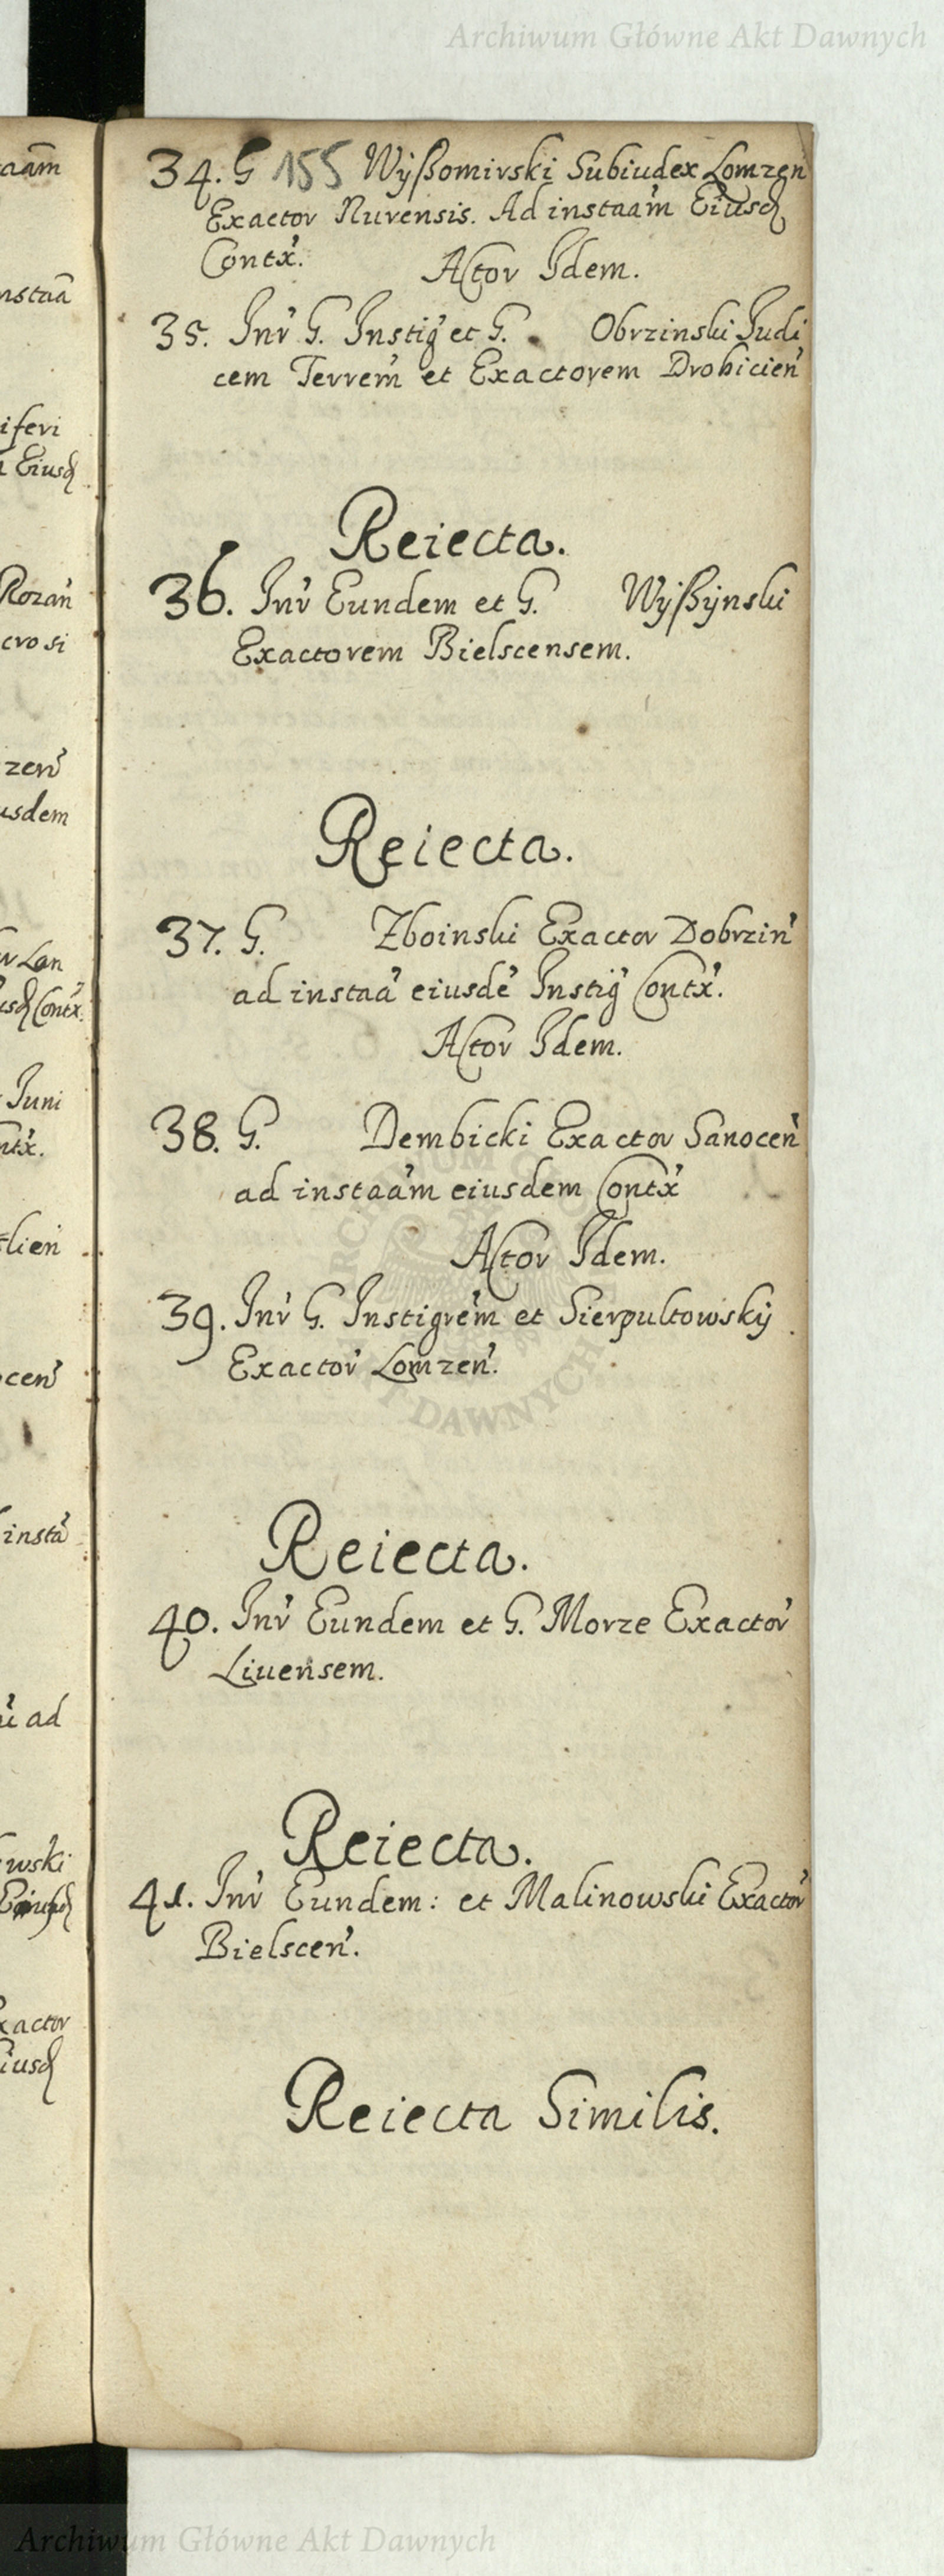 Archiwum Główne Akt Dawnych
aam̃
nstaã
iferi
Eiusd
Rozan̄
cro si
zen̄
usdem
Lan
Contx̄.
Juni
ntx̄.
lien̄
cen̄
instã
ad
wski
xactor
iusd
34. G 155 Wyßomirski Subiudex Lomzen
Exactor Nurensis. Ad instaãm Eiusd
Contx̄. Actor Idem.
35. Inr̄ G. Instig̃ et G. Obrzinski Judi
cem Terrem̄ et Exactorem Drohicien̄
Reiecta.
36. Inr̄ Eundem et G. Wyßynski
Exactorem Bielscensem.
Reiecta.
37. G. Zboinski Exactor Dobrzin̄
ad instaã eiusdē Instig̃ Contx̄.
Actor Idem.
38. G. Dembicki Exactor Sanocen̄
ad instaãm eiusdem Contx̄
Actor Idem.
39. Inr̄ G. Instigrēm et Sierpultowsky
Exactor̄ Lomzen̄.
DAWNYCH
Reiecta.
40. Inr̄ Eundem et G. Morze Exactor̄
Liuensem.
Reiecta.
41. Inr̄ Eundem: et Malinowski Exactor̄
Bielscen̄.
Reiecta Similis.
Archiwum Główne Akt Dawnych